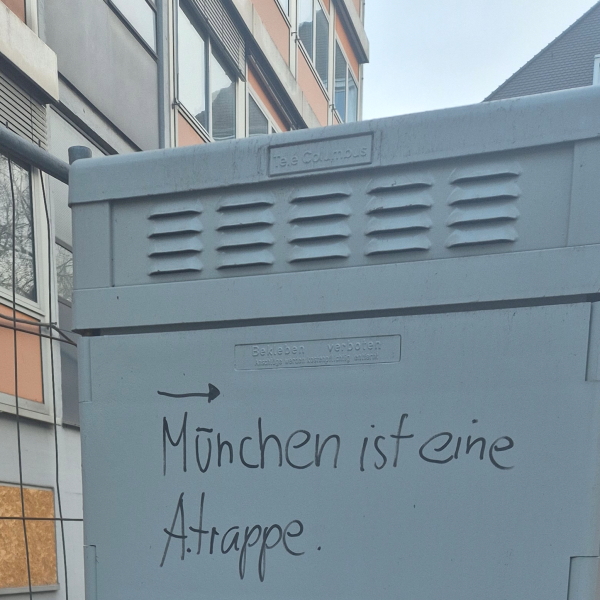 Tele Columbus
Bekleben verboten
→
München ist eine
Atrappe.